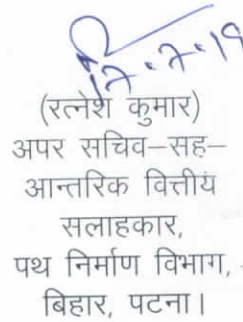 17.7.19
(रत्नेश कुमार)
अपर सचिव–सह–
आन्तरिक वित्तीय
सलाहकार,
पथ निर्माण विभाग,
बिहार, पटना।